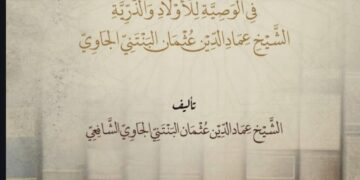 في الوَصِيَّةِ لِلْأَوْلَادِ وَالذُّرِّيَّةِ
الشَّيْخِ عِمَادِ الدِّيْنِ عُثْمَانَ البَنْتَنِيِّ الجَاوِيِّ
تأليف
الشَّيْخِ عِمَادِ الدِّيْنِ عُثْمَانَ البَنْتَنِيِّ الجَاوِيِّ الشَّافِعِيِّ